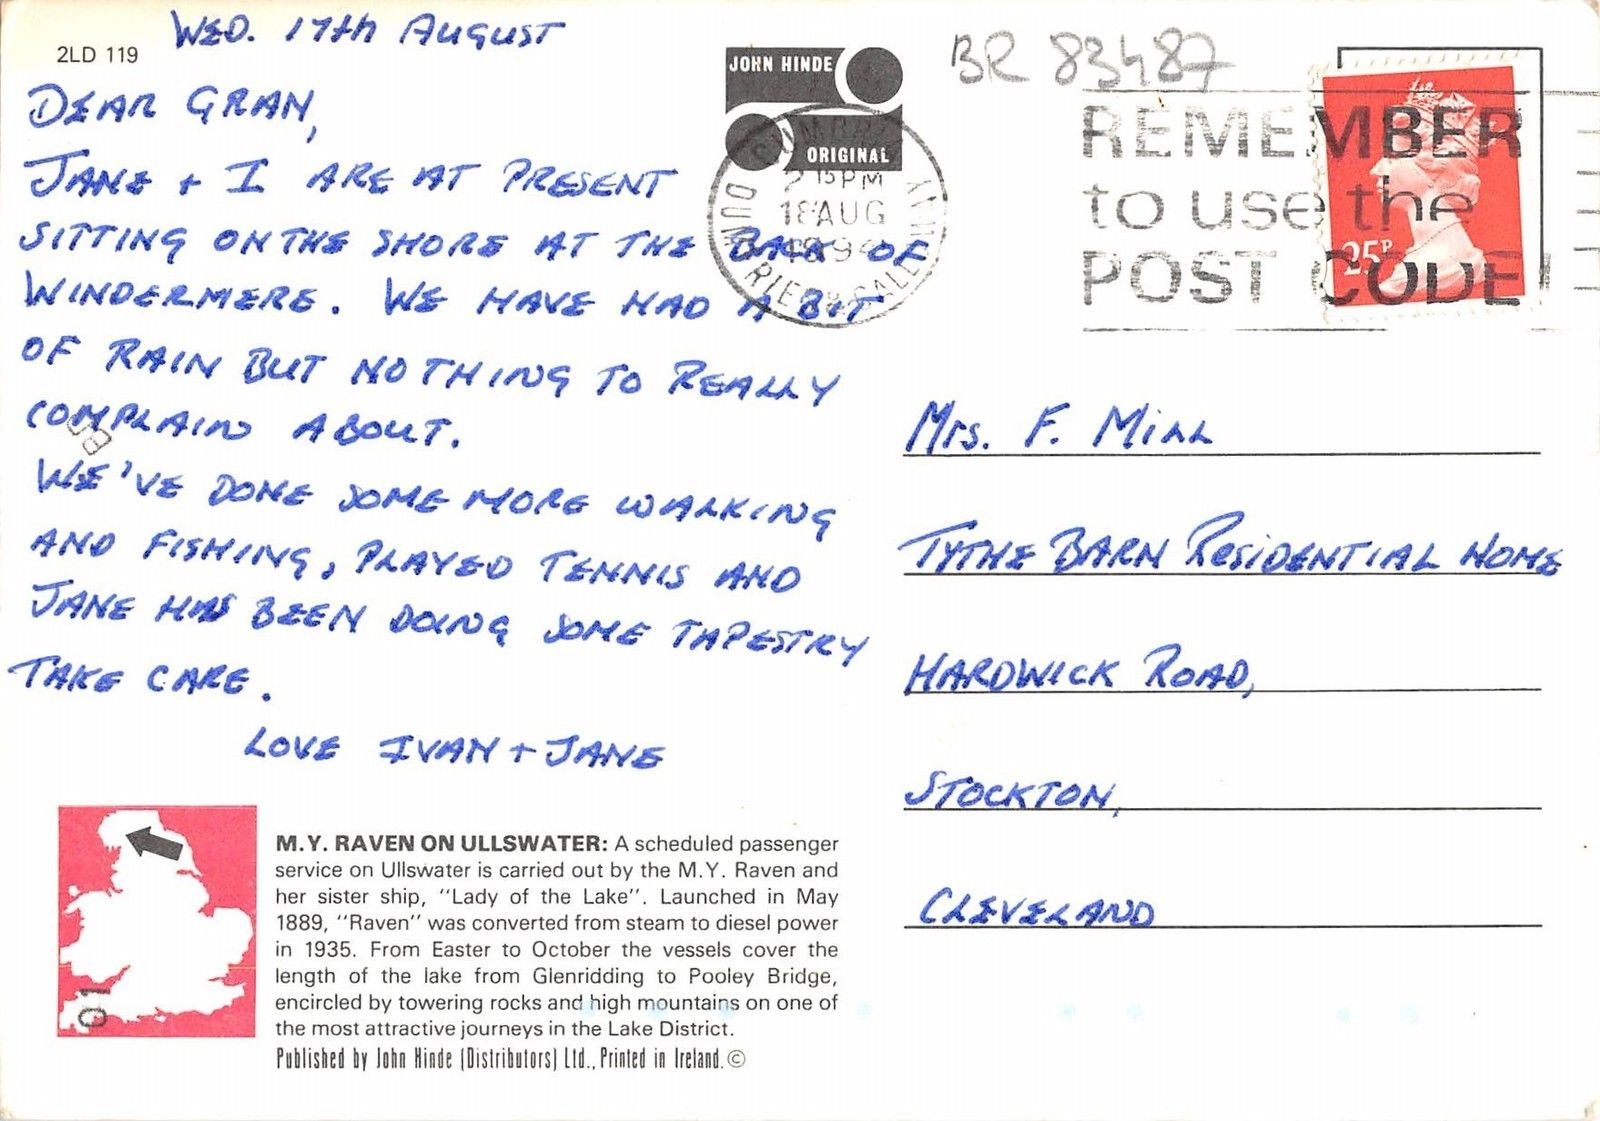 2LD 119
WED. 17th AUGUST
DEAR GRAN,
JANE + I ARE AT PRESENT
SITTING ON THE SHORE AT THE BACK OF
WINDERMERE. WE HAVE HAD A BIT
OF RAIN BUT NOTHING TO REALLY
COMPLAIN ABOUT.
WE'VE DONE SOME MORE WALKING
AND FISHING, PLAYED TENNIS AND
JANE HAS BEEN DOING SOME TAPESTRY
TAKE CARE.
LOVE IVAN + JANE
JOHN HINDE
ORIGINAL
CUMBRIA
DUMFRIES & GALLOWAY
2 15 PM
18 AUG
1994
BR 83487
REMEMBER
to use the
POST CODE
25P
Mrs. F. Mill
TYTHE BARN RESiDENTIAL HOME
HARDWICK ROAD,
STOCKTON,
CLEVELAND
M.Y. RAVEN ON ULLSWATER: A scheduled passenger
service on Ullswater is carried out by the M.Y. Raven and
her sister ship, "Lady of the Lake". Launched in May
1889, "Raven" was converted from steam to diesel power
in 1935. From Easter to October the vessels cover the
length of the lake from Glenridding to Pooley Bridge,
encircled by towering rocks and high mountains on one of
the most attractive journeys in the Lake District.
Published by John Hinde (Distributors) Ltd., Printed in Ireland. ©
01